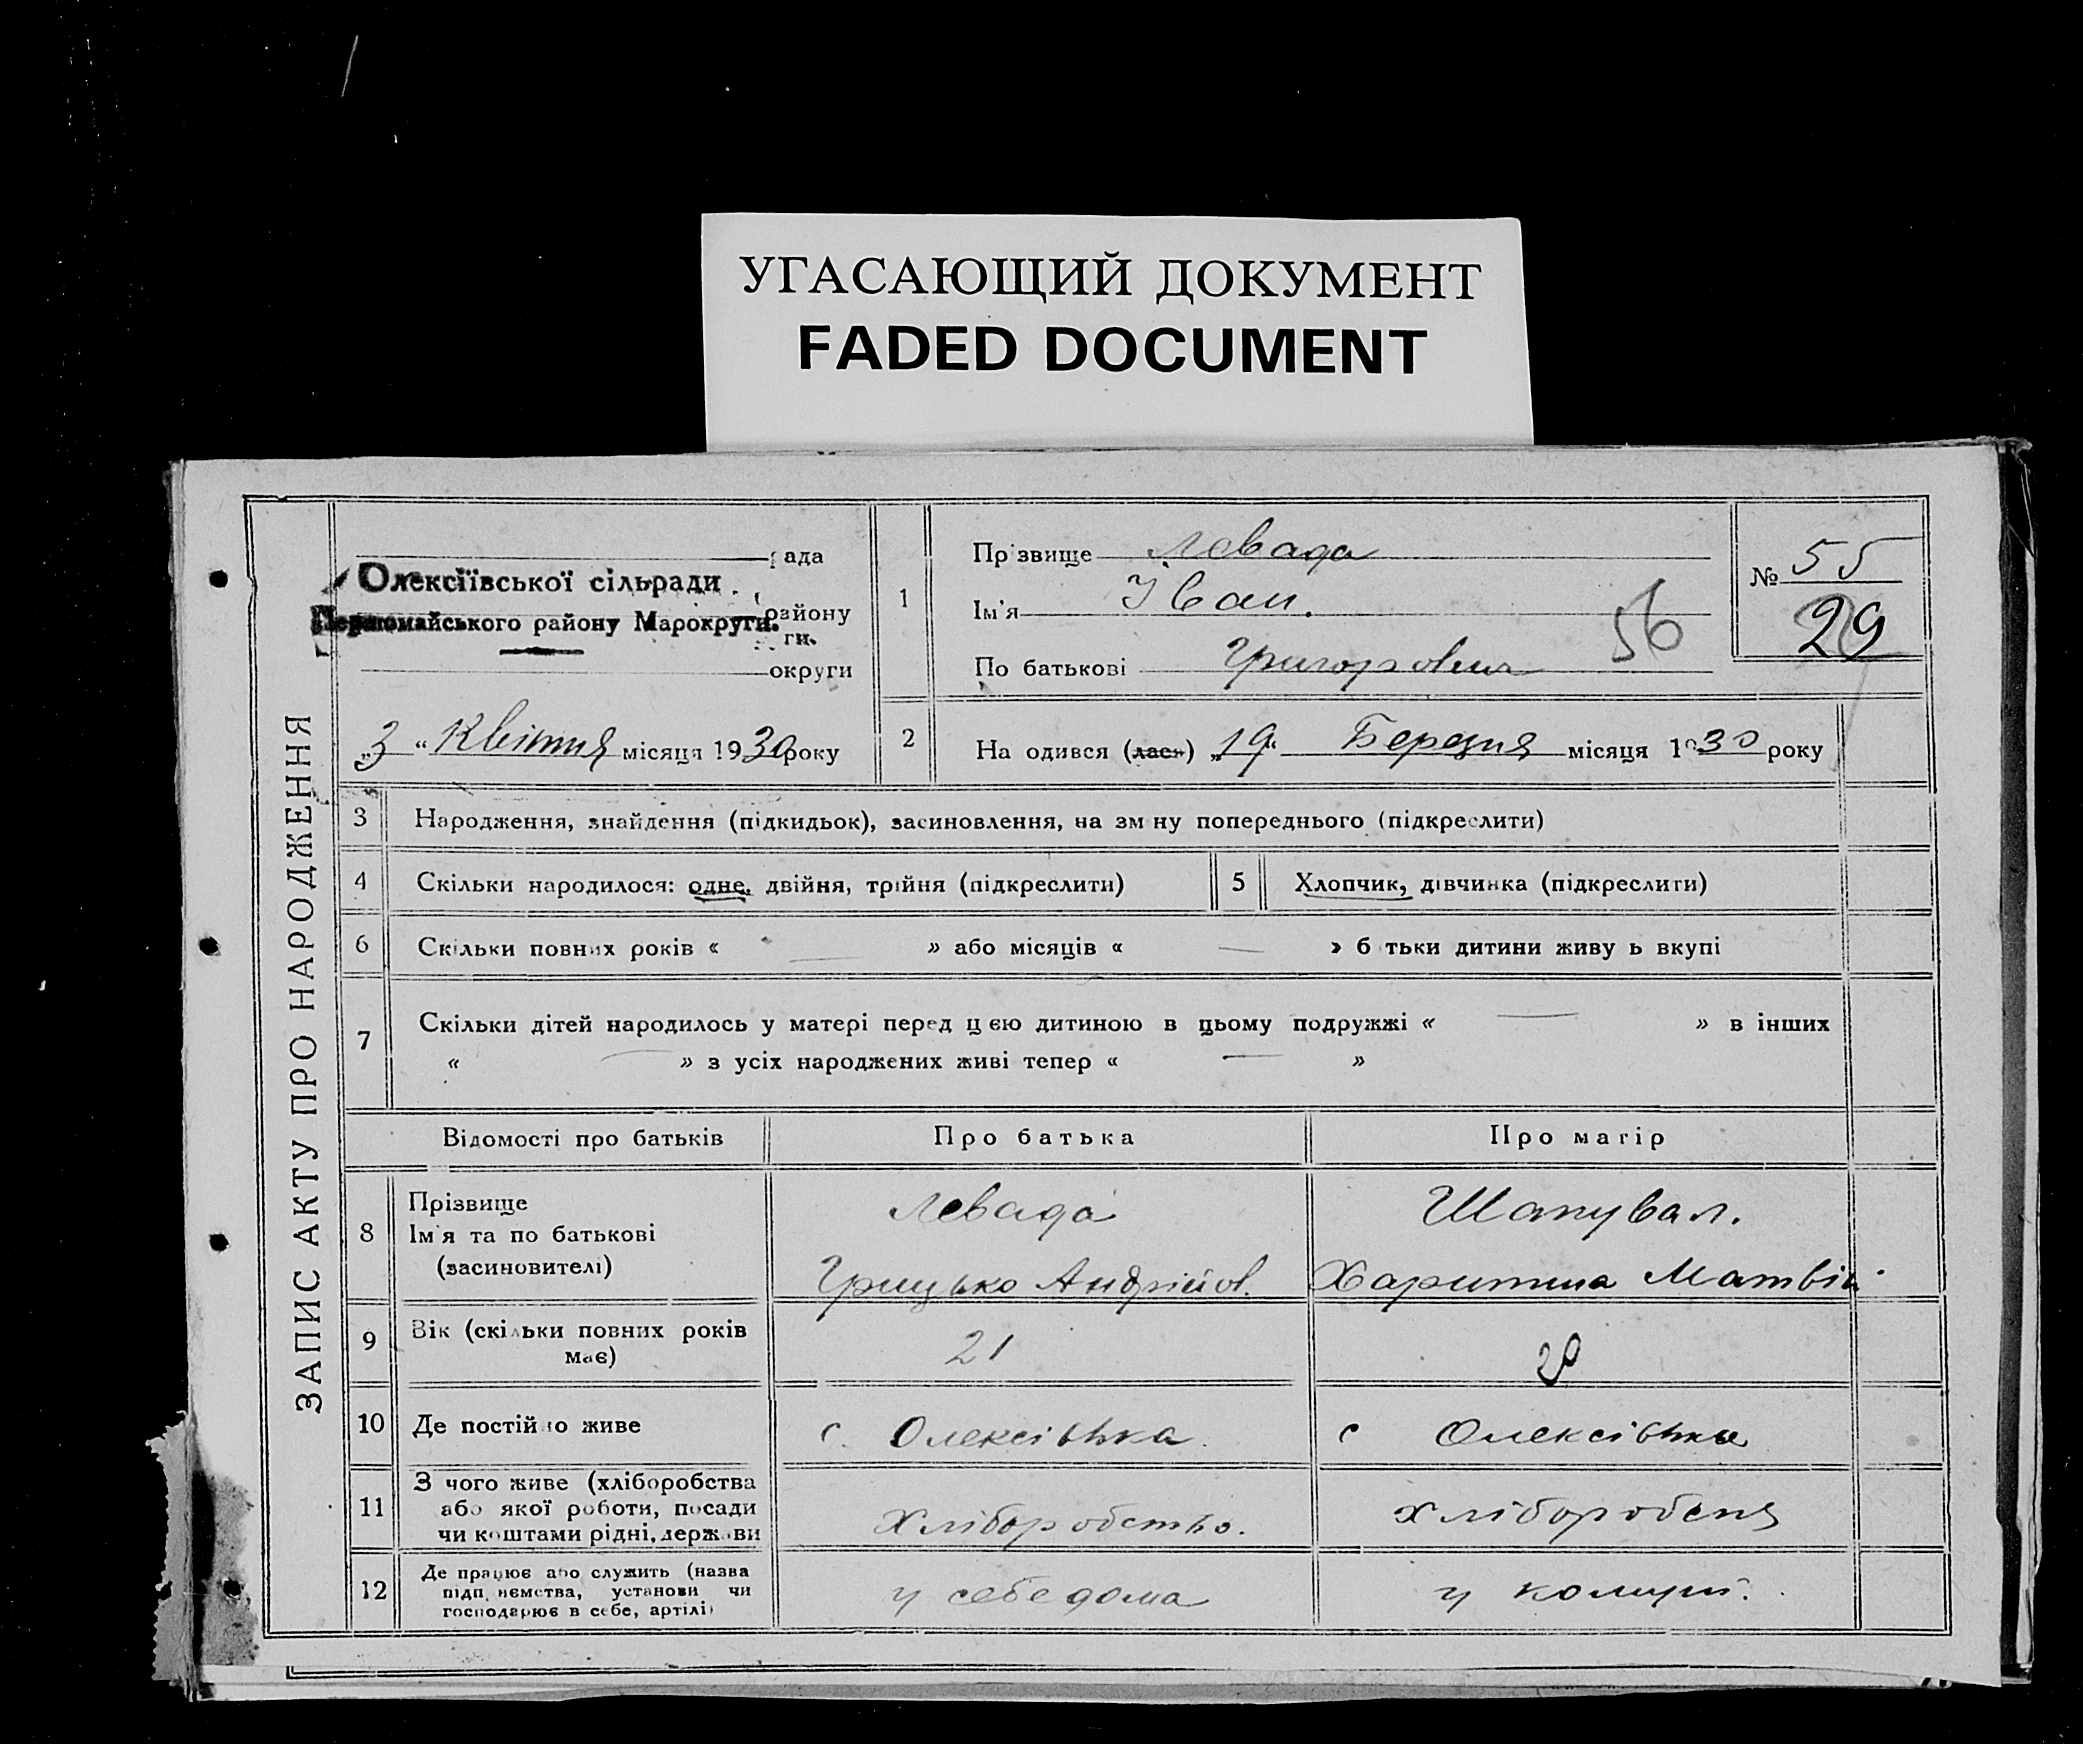 УГАСАЮЩИЙ ДОКУМЕНТ
FADED DOCUMENT
ЗАПИС АКТУ ПРО НАРОДЖЕННЯ
рада
Олексіївської сільради
району
Первомайського району Марокруги.
ги.
округи
„3 “ Квітня місяця 1930 року
1
Пр звище Левада
Ім'я Іван.
По батькові Григорович
56
№ 55
29
2
На одився (лася) „19“ Березня місяця 1930 року
3 Народження, знайдення (підкидьок), засиновлення, на зм ну попереднього (підкреслити)
4 Скільки народилося: одне, двійня, трійня (підкреслити)
5 Хлопчик, дівчинка (підкреслити)
6 Скільки повних років « — » або місяців « — » б тьки дитини живу ь вкупі
7 Скільки дітей народилось у матері перед цією дитиною в цьому подружжі « — » в інших
« — » з усіх народжених живі тепер « — »
Відомості про батьків Про батька Про матір
8
Прізвище
Ім'я та по батькові
(засиновителі)
Левада
Грицько Андрійов.
Шапувал.
Харитина Матвій
9
Вік (скільки повних років
має)
21
20
10 Де постійно живе
с. Олексівка.
с Олексівка
11
З чого живе (хліборобства
або якої роботи, посади
чи коштами рідні, держави
Хліборобство.
хліборобеня
12
Де працює або служить (назва
підп иємства, установи чи
господарює в себе, артілі)
у себе дома
у комуні.